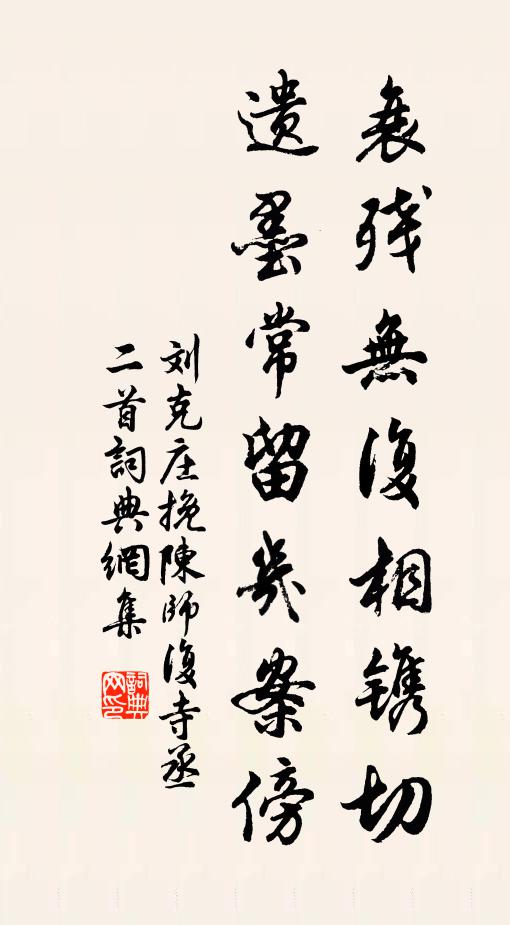 衰残無復相镌切
遺墨常留幾案傍
刘克庄挽陳師復寺丞
二首詞典網集
詞典
网印